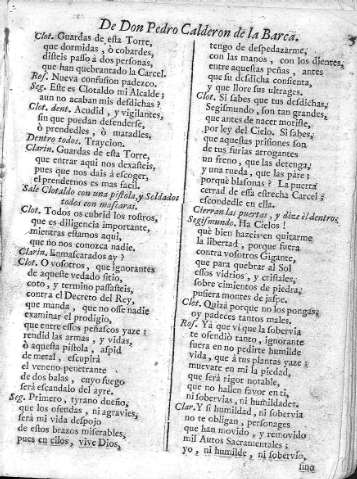 De Don Pedro Calderon de la Barca.
Clot. Guardas de esta Torre,
que dormidas, ò cobardes,
disteis passo à dos personas,
que han quebrantado la Carcel.
Ros. Nueva confusion padezco.
Seg. Este es Clotaldo mi Alcaide;
aun no acaban mis desdichas?
Clot. dent. Acudid, y vigilantes,
sin que puedan defenderse,
ò prendedles, ò matadles.
Dentro todos. Traycion.
Clarin. Guardas de esta Torre,
que entrar aqui nos dexasteis,
pues que nos dais à escoger,
el prendernos es mas facil.
Sale Clotaldo con una pistola, y Soldados
todos con mascaras.
Clot. Todos os cubrid los rostros,
que es diligencia importante,
mientras estamos aqui,
que no nos conozca nadie.
Clarin. Enmascarados ay?
Clot. O vosotros, que ignorantes
de aqueste vedado sitio,
coto, y termino passasteis,
contra el Decreto del Rey,
que manda, que no osse nadie
examinar el prodigio,
que entre essos peñascos yaze;
rendid las armas, y vidas,
ò aquesta pistola, aspid
de metal, escupirà
el veneno penetrante
de dos balas, cuyo fuego
serà escandalo del ayre.
Seg. Primero, tyrano dueño,
que los ofendas, ni agravies,
serà mi vida despojo
de estos brazos miserables,
pues en ellos, vive Dios,
tengo de despedazarme,
con las manos, con los dientes,
entre aquestas peñas, antes
que su desdicha consienta,
y que llore sus ultrages.
Clot. Si sabes que tus desdichas,
Segismundo, son tan grandes,
que antes de nacer moriste,
por ley del Cielo. Si sabes,
que aquestas prisiones son
de tus furias arrogantes
un freno, que las detenga,
y una rueda, que las pare,
porquè blasonas? La puerta
cerrad de essa estrecha Carcel;
escondedle en ella.
Cierran las puertas, y dize èl dentro,
Segismundo. Ha Cielos!
què bien hazeis en quitarme
la libertad, porque fuera
contra vosotros Gigante,
que para quebrar al Sol
essos vidrios, y cristales,
sobre cimientos de piedra,
pusiera montes de jaspe.
Clot. Quizà porque no los pongas,
oy padeces tantos males.
Ros. Yà que vi que la sobervia
te ofendiò tanto, ignorante
fuera en no pedirte humilde
vida, que à tus plantas yaze;
muevate en mi la piedad,
que serà rigor notable,
que no hallen favor en ti,
ni sobervias, ni humildades.
Clar. Y si humildad, ni sobervia
no te obligan, personages
que han movido, y removido
mil Autos Sacramentales;
yo, ni humilde, ni sobervio,
sino